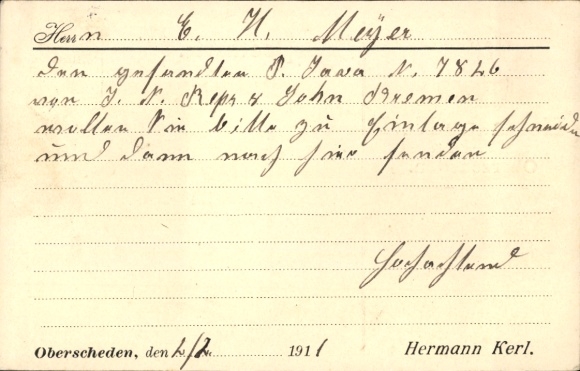 Herrn E. H. Meÿer
den gesandten P. Java N. 7826
von J. H. & Sohn Bremen
wollen Sie bitte zu Einlage schneiden
und dann nach hier senden
Hochachtend
Oberscheden, den 2/2. 1911 Hermann Kerl.